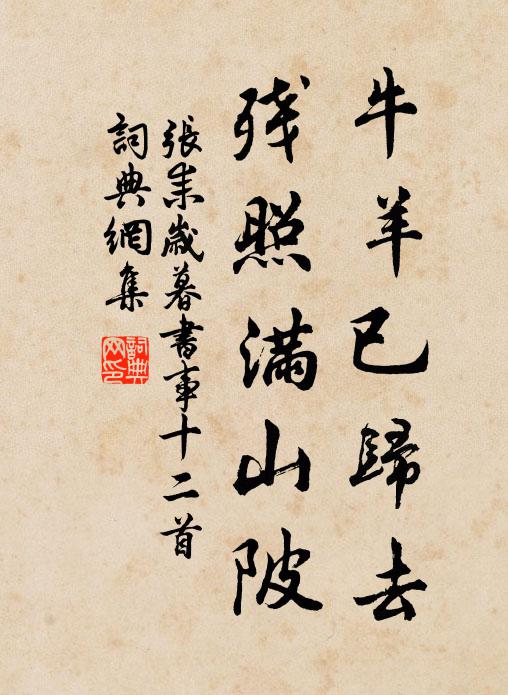 牛羊已歸去
残照满山陂
張耒歲暮書事十二首
詞典網集
詞典網印